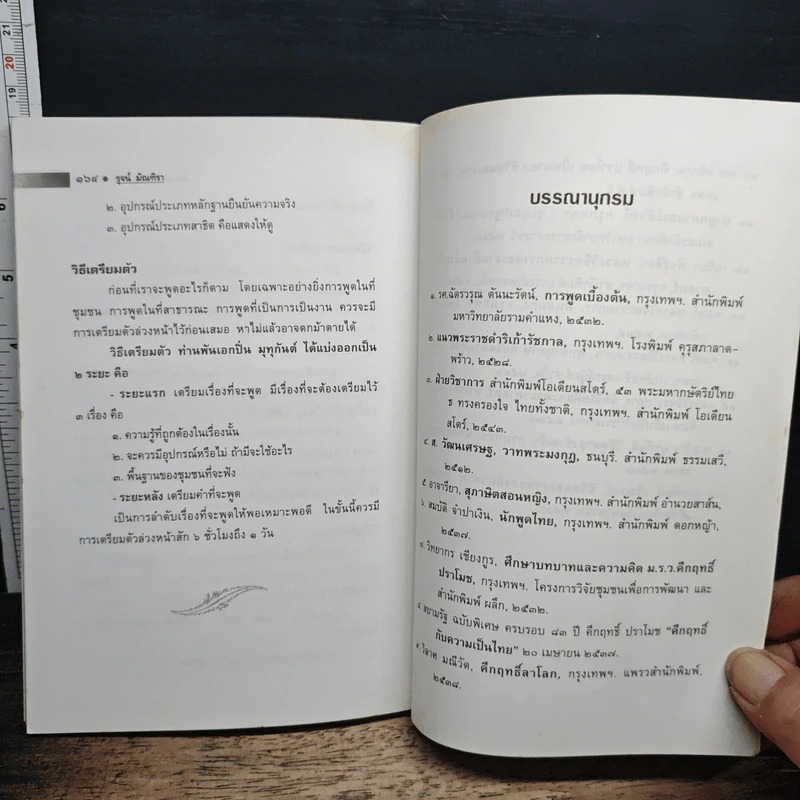 ๑๖๔ ● รุจน์ มัณฑิรา
๒. อุปกรณ์ประเภทหลักฐานยืนยันความจริง
๓. อุปกรณ์ประเภทสาธิต คือแสดงให้ดู
วิธีเตรียมตัว
ก่อนที่เราจะพูดอะไรก็ตาม โดยเฉพาะอย่างยิ่งการพูดในที่
ชุมชน การพูดในที่สาธารณะ การพูดที่เป็นการเป็นงาน ควรจะมี
การเตรียมตัวล่วงหน้าไว้ก่อนเสมอ หาไม่แล้วอาจตกม้าตายได้
วิธีเตรียมตัว ท่านพันเอกปิ่น มุทุกันต์ ได้แบ่งออกเป็น
๒ ระยะ คือ
- ระยะแรก เตรียมเรื่องที่จะพูด มีเรื่องที่จะต้องเตรียมไว้
๓ เรื่อง คือ
๑. ความรู้ที่ถูกต้องในเรื่องนั้น
๒. จะควรมีอุปกรณ์หรือไม่ ถ้ามีจะใช้อะไร
๓. พื้นฐานของชุมชนที่จะฟัง
- ระยะหลัง เตรียมคำที่จะพูด
เป็นการลำดับเรื่องที่จะพูดให้พอเหมาะพอดี ในขั้นนี้ควรมี
การเตรียมตัวล่วงหน้าสัก ๖ ชั่วโมงถึง ๑ วัน
บรรณานุกรม
๑. รศ.ฉัตรวรุณ ตันนะรัตน์, การพูดเบื้องต้น, กรุงเทพฯ. สำนักพิมพ์
มหาวิทยาลัยรามคำแหง, ๒๕๓๒.
๒. แนวพระราชดำริเก้ารัชกาล, กรุงเทพฯ. โรงพิมพ์ คุรุสภาลาด-
พร้าว, ๒๕๒๘.
๓. ฝ่ายวิชาการ สำนักพิมพ์โอเดียนสโตร์, ๕๓ พระมหากษัตริย์ไทย
ธ ทรงครองใจ ไทยทั้งชาติ, กรุงเทพฯ. สำนักพิมพ์ โอเดียน
สโตร์, ๒๕๔๓.
๔. ส. วัฒนเศรษฐ, วาทพระมงกุฎ, ธนบุรี. สำนักพิมพ์ ธรรมเสวี,
๒๕๑๒.
๕. อาจาริยา, สุภาษิตสอนหญิง, กรุงเทพฯ. สำนักพิมพ์ อำนวยสาส์น,
๖. สมบัติ จำปาเงิน, นักพูดไทย, กรุงเทพฯ. สำนักพิมพ์ ดอกหญ้า,
๒๕๓๗.
๗. วิทยากร เชียงกูร, ศึกษาบทบาทและความคิด ม.ร.ว.คึกฤทธิ์
ปราโมช, กรุงเทพฯ. โครงการวิจัยชุมชนเพื่อการพัฒนา และ
สำนักพิมพ์ ผลึก, ๒๕๓๒.
๘. สยามรัฐ ฉบับพิเศษ ครบรอบ ๘๓ ปี คึกฤทธิ์ ปราโมช "คึกฤทธิ์
กับความเป็นไทย" ๒๐ เมษายน ๒๕๓๗.
๙. วิลาศ มณีวัต, คึกฤทธิ์ลาโลก, กรุงเทพฯ. แพรวสำนักพิมพ์,
๒๕๓๘.